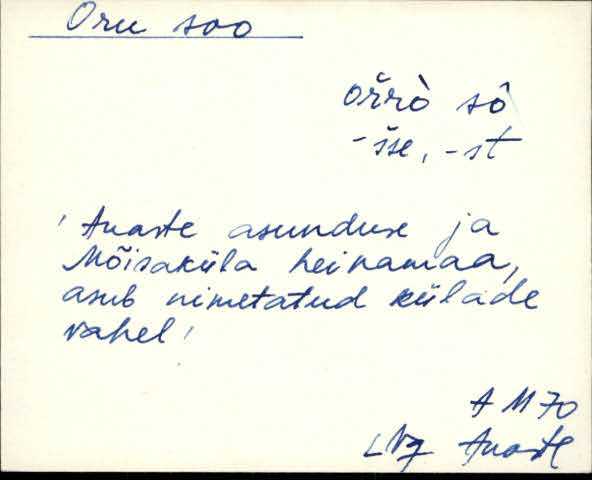 Oru soo
oŕrò sô
-sse, -st
' Anaste asunduse ja
Mõisaküla heinamaa,
asub nimetatud külade
vahel '
A M 70
LNg Anaste